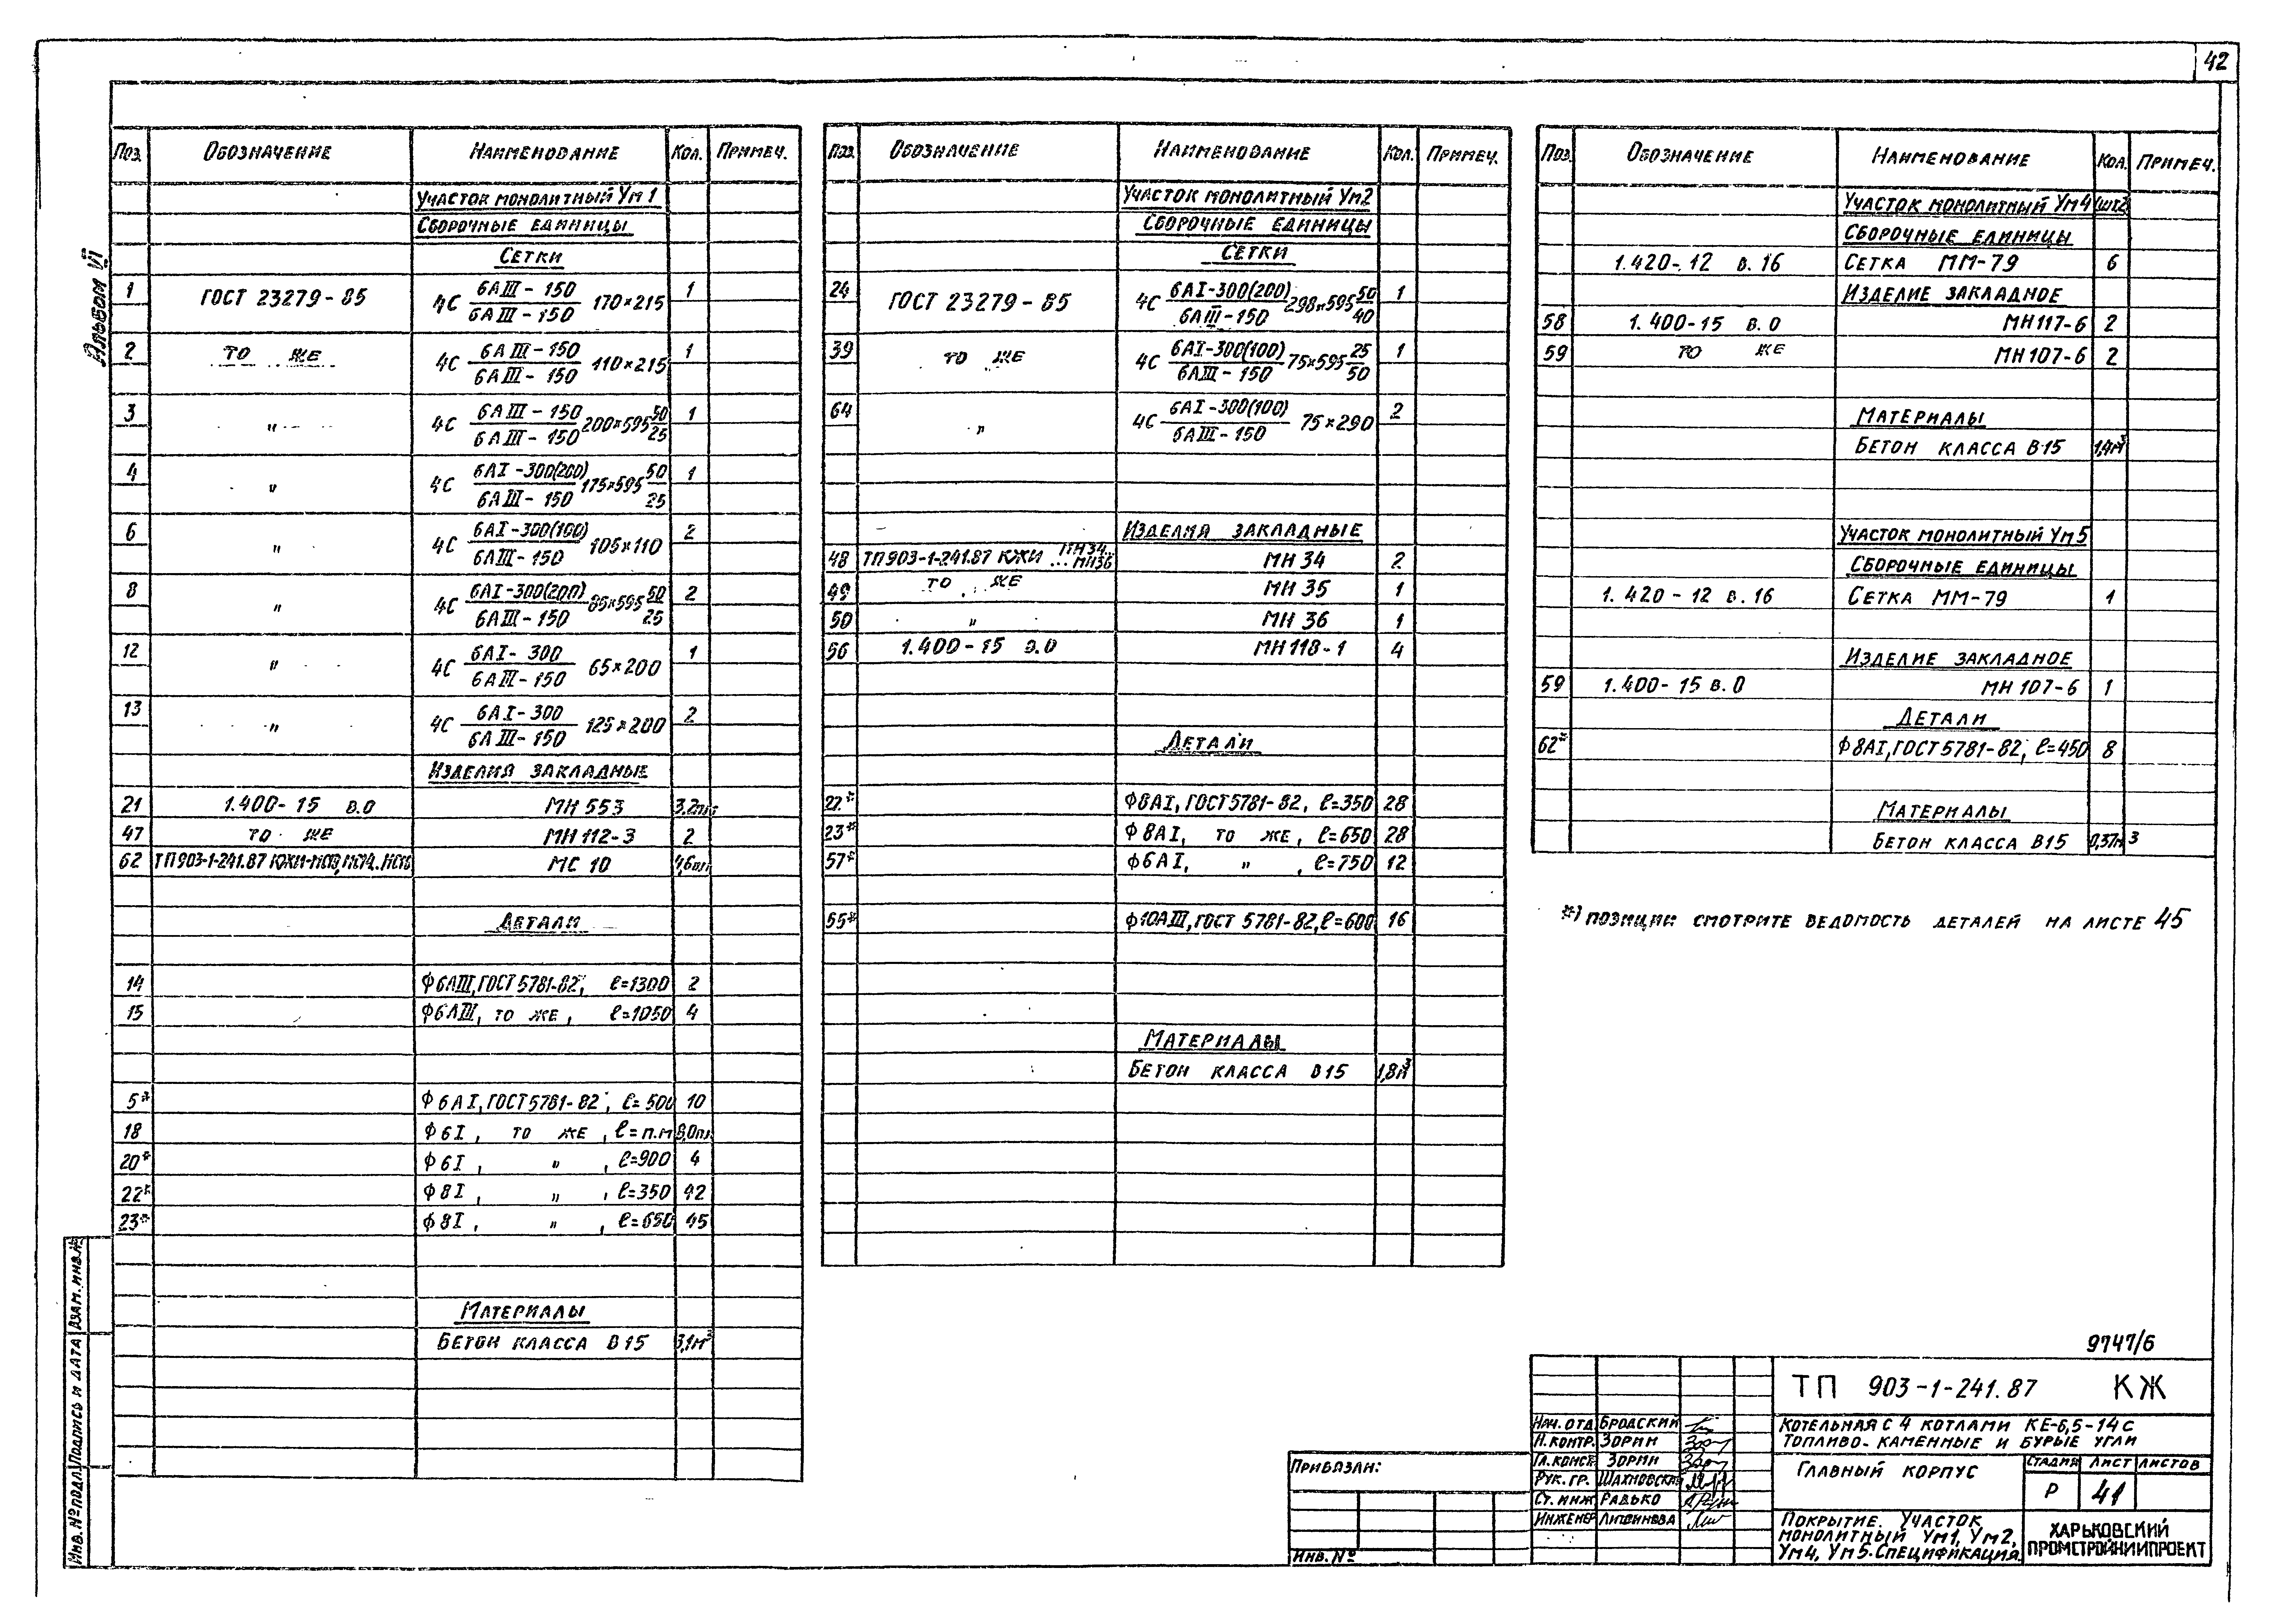 42
Альбом VI
Поз. Обозначение Наименование Кол. Примеч.
Участок монолитный Ум 1
Сборочные единицы
Сетки
1 ГОСТ 23279-85 4С 6АIII-150/6АIII-150 170×215 1
2 то же 4С 6АIII-150/6АIII-150 110×215 1
3 " 4С 6АIII-150/6АIII-150 200×595 50/25 1
4 " 4С 6АI-300(200)/6АIII-150 175×595 50/25 1
6 " 4С 6АI-300(100)/6АIII-150 105×110 2
8 " 4С 6АI-300(200)/6АIII-150 85×595 50/25 2
12 " 4С 6АI-300/6АIII-150 65×200 1
13 " 4С 6АI-300/6АIII-150 125×200 2
Изделия закладные
21 1.400-15 в.0 МН 553 3,2п.м
47 то же МН 112-3 2
62 ТП903-1-241.87 КЖИ МС 10 4,6п.м
Детали
14 Ф6АIII, ГОСТ 5781-82, ℓ=1300 2
15 Ф6АIII, то же, ℓ=1050 4
5* Ф6АI, ГОСТ 5781-82, ℓ=500 10
18 Ф6I, то же, ℓ=п.м
20* Ф6I, ", ℓ=900 4
22* Ф8I, ", ℓ=350 42
23* Ф8I, ", ℓ=650 45
Материалы
Бетон класса В15 3,1м³
Поз. Обозначение Наименование Кол. Примеч.
Участок монолитный Ум2
Сборочные единицы
Сетки
24 ГОСТ 23279-85 4С 6АI-300(200)/6АIII-150 298×595 50/40 1
39 то же 4С 6АI-300(100)/6АIII-150 75×595 25/50 1
64 " 4С 6АI-300(100)/6АIII-150 75×290 2
Изделия закладные
48 ТП903-1-241.87 КЖИ МН34...МН36 МН 34 2
49 то же МН 35 1
50 " МН 36 1
56 1.400-15 в.0 МН118-1 4
Детали
22* Ф8АI, ГОСТ 5781-82, ℓ=350 28
23* Ф8АI, то же, ℓ=650 28
57* Ф6АI, ", ℓ=750 12
55* Ф10АIII, ГОСТ 5781-82, ℓ=600 16
Материалы
Бетон класса В15 1,8м³
Поз. Обозначение Наименование Кол. Примеч.
Участок монолитный Ум4
Сборочные единицы
1.420-12 в.16 Сетка ММ-79 6
Изделие закладное
58 1.400-15 в.0 МН117-6 2
59 то же МН107-6 2
Материалы
Бетон класса В15 1,4м³
Участок монолитный Ум5
Сборочные единицы
1.420-12 в.16 Сетка ММ-79 1
Изделие закладное
59 1.400-15 в.0 МН 107-6 1
Детали
62* Ф8АI, ГОСТ 5781-82, ℓ=450 8
Материалы
Бетон класса В15 0,37м3
*) позиции смотрите ведомость деталей на листе 45
9747/6
ТП 903-1-241.87 КЖ
Котельная с 4 котлами КЕ-6,5-14с
Топливо-каменные и бурые угли
Главный корпус
Стадия Лист Листов
Р 41
Покрытие. Участок
монолитный Ум1, Ум2,
Ум4, Ум5. Спецификация.
Харьковский
Промстройниипроект
Нач. отд Бродский
Н. контр. Зорин
Гл. конст Зорин
Рук. гр. Шахновская
Ст. инж. Радько
Инженер Литвинова
Привязан:
Инв. №
Инв. № подл. Подпись и дата Взам. инв. №